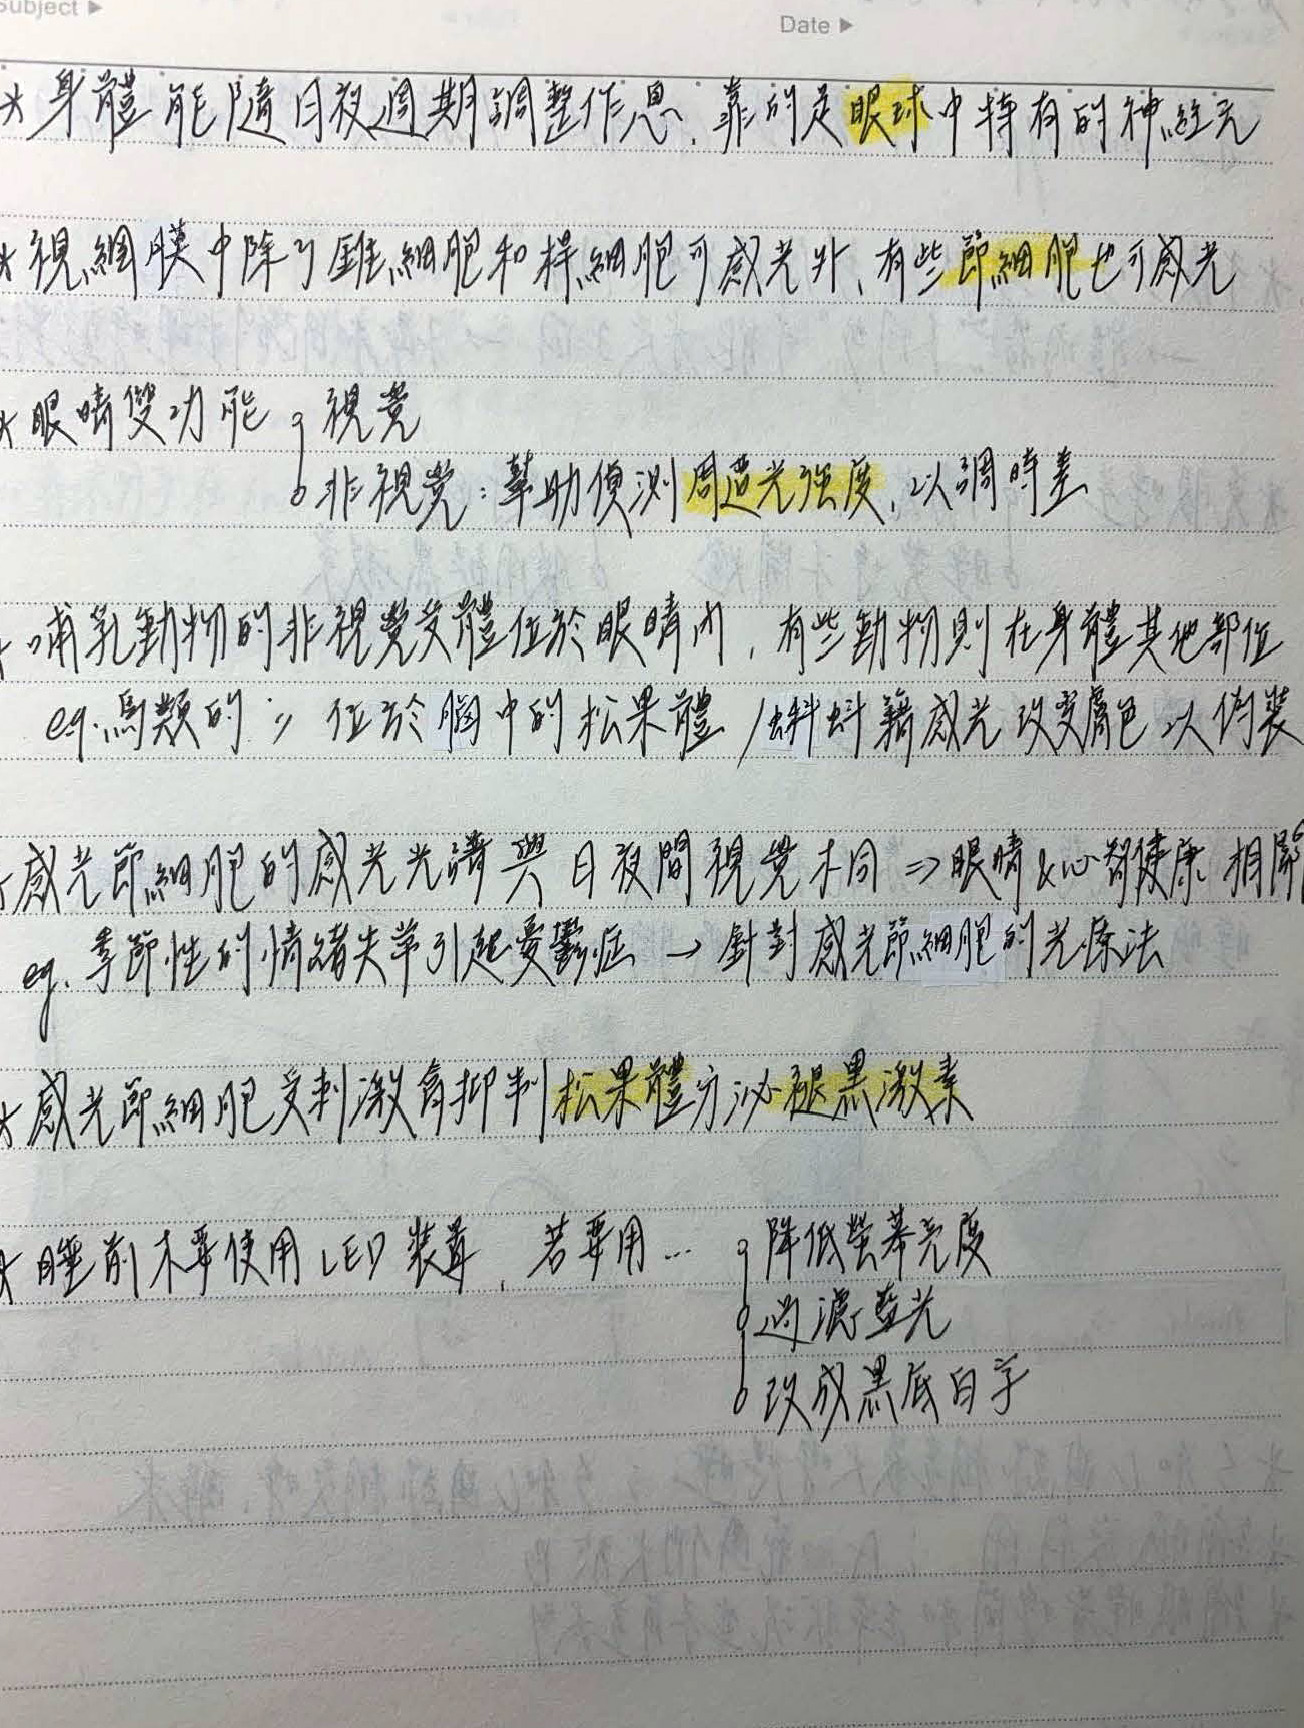 Subject ▶
Date ▶
* 身體能隨日夜週期調整作息，靠的是眼球中特有的神經元
* 視網膜中除了錐細胞和桿細胞可感光外，有些節細胞也可感光
* 眼睛雙功能 視覺
非視覺：幫助偵測周遭光強度，以調時差
* 哺乳動物的非視覺受體位於眼睛內，有些動物則在身體其他部位
eg. 鳥類的 〃 位於腦中的松果體 / 蝌蚪藉感光改變膚色以偽裝
* 感光節細胞的感光光譜與日夜間視覺不同 ⇒ 眼睛 & 心智健康相關
eg. 季節性的情緒失常引起憂鬱症 → 針對感光節細胞的光療法
* 感光節細胞受刺激會抑制松果體分泌褪黑激素
* 睡前不要使用 LED 裝置，若要用… 降低螢幕亮度
過濾藍光
改成黑底白字